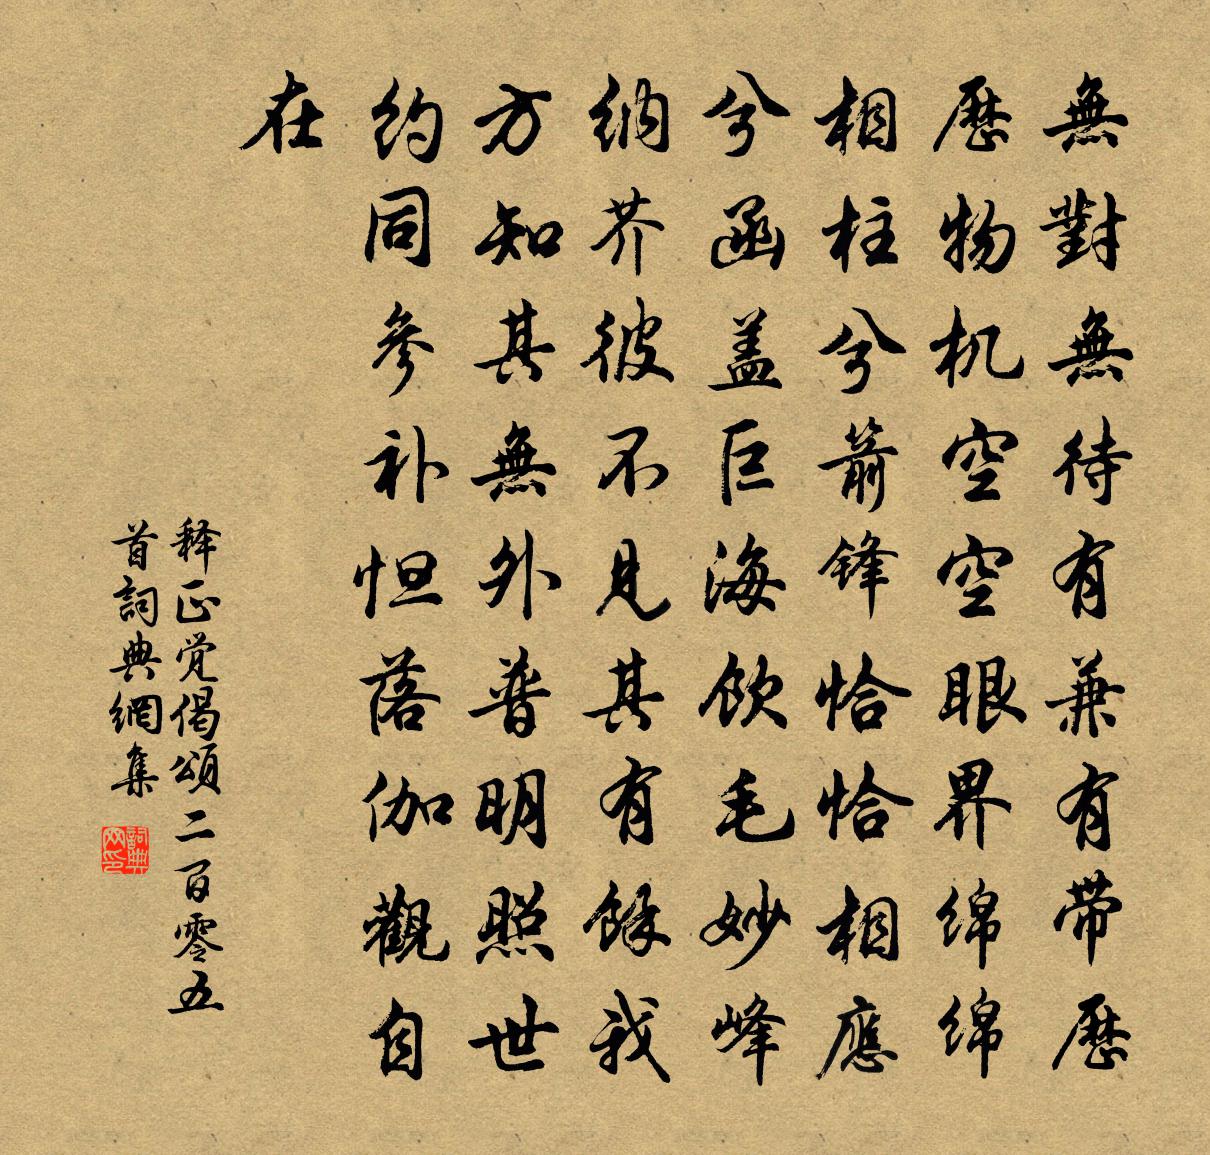 無對無待有兼有带歷
歷物机空空眼界绵绵
相柱兮箭锋恰恰相應
兮函盖巨海飲毛妙峰
納芥彼不見其有餘我
方知其無外普明照世
約同參补怛落伽觀自
在
释正觉偈頌二百零五
首詞典網集
詞典網印